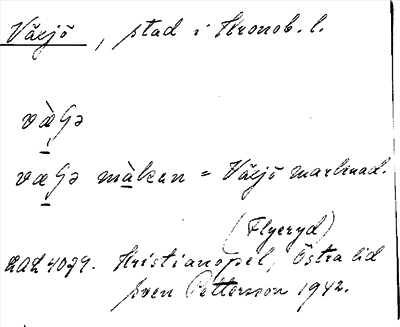 Växjö, stad i Kronob. l.
væ̀ʃə
væʃə màkan = Växjö marknad.
(Flyeryd)
LAL 4079. Kristianopel, Östra hd
Sven Pettersson 1942.